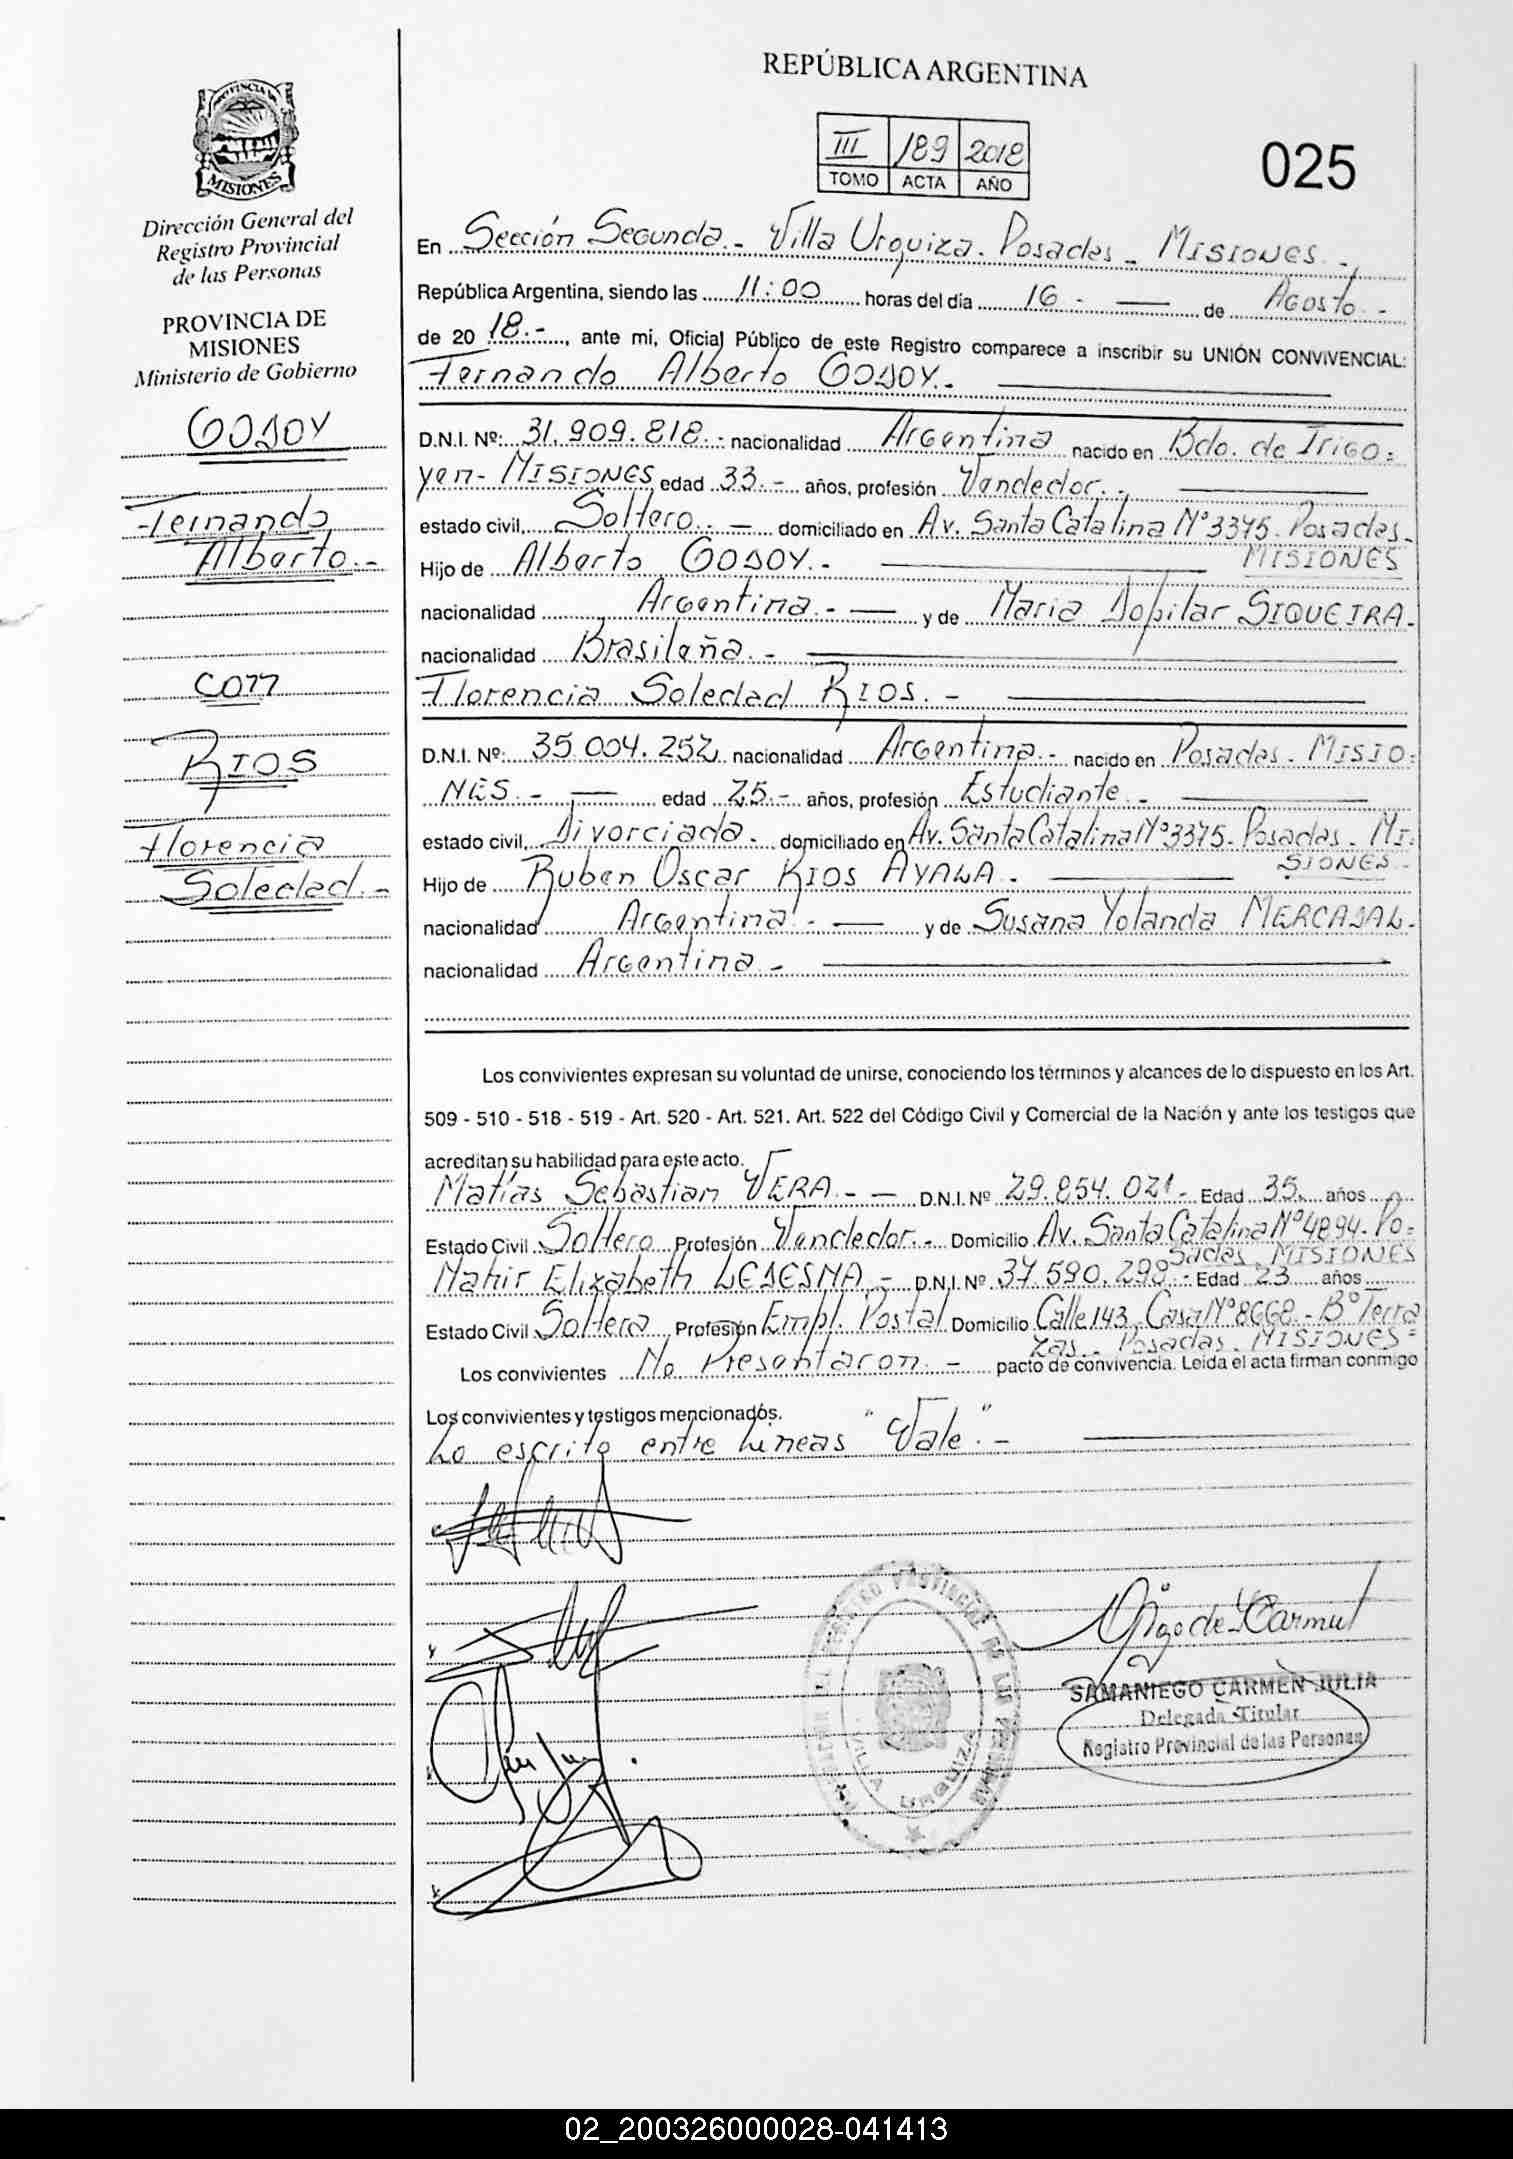 REPÚBLICA ARGENTINA
III 189 2018
TOMO ACTA AÑO
025
PROVINCIA DE
MISIONES
Dirección General del
Registro Provincial
de las Personas
PROVINCIA DE
MISIONES
Ministerio de Gobierno
GODOY
Fernando
Alberto.-
con
RIOS
Florencia
Soledad.-
En Sección Segunda.- Villa Urquiza. Posadas - MISIONES.-
República Argentina, siendo las 11:00 horas del día 16.- — de Agosto.-
de 20 18.-, ante mi, Oficial Público de este Registro comparece a inscribir su UNIÓN CONVIVENCIAL:
Fernando Alberto GODOY.-
D.N.I. Nº: 31.909.818.- nacionalidad Argentina nacido en Bdo. de Irigo=
yen- MISIONES edad 33.- años, profesión Vendedor.-
estado civil, Soltero.- — domiciliado en Av. Santa Catalina Nº 3375. Posadas.
MISIONES
Hijo de Alberto GODOY.-
nacionalidad Argentina.- — y de Maria Dopilar SIQUEIRA.
nacionalidad Brasileña.-
Florencia Soledad RIOS.-
D.N.I. Nº: 35.004.252 nacionalidad Argentina.- nacido en Posadas. MISIO=
NES.- — edad 25.- años, profesión Estudiante.-
estado civil, Divorciada. domiciliado en Av. Santa Catalina Nº 3375. Posadas. MI=
SIONES.-
Hijo de Ruben Oscar RIOS AYALA.-
nacionalidad Argentina.- — y de Susana Yolanda MERCADAL.
nacionalidad Argentina.-
Los convivientes expresan su voluntad de unirse, conociendo los términos y alcances de lo dispuesto en los Art.
509 - 510 - 518 - 519 - Art. 520 - Art. 521. Art. 522 del Código Civil y Comercial de la Nación y ante los testigos que
acreditan su habilidad para este acto.
Matías Sebastian VERA.- — D.N.I. Nº 29.854.021.- Edad 35. años
Estado Civil Soltero Profesión Vendedor.- Domicilio Av. Santa Catalina Nº 4894. Po=
sadas. MISIONES
Mahir Elizabeth LEDESMA.- D.N.I. Nº 37.590.290.- Edad 23 años
Estado Civil Soltera Profesión Empl. Postal Domicilio Calle 143. Casa Nº 8668.- Bº Terra
zas.- Posadas. MISIONES=
Los convivientes No Presentaron.- pacto de convivencia. Leida el acta firman conmigo
Los convivientes y testigos mencionados.
Lo escrito entre lineas "Vale".-
VILLA URQUIZA
SAMANIEGO CARMEN JULIA
Delegada Titular
Registro Provincial de las Personas
02_200326000028-041413